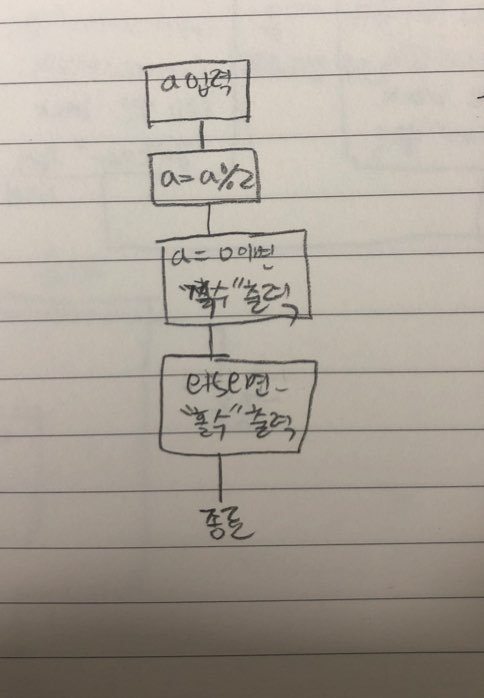 a 입력
a=a%2
a=0이면
출력
else면
"홀수" 출력
종료